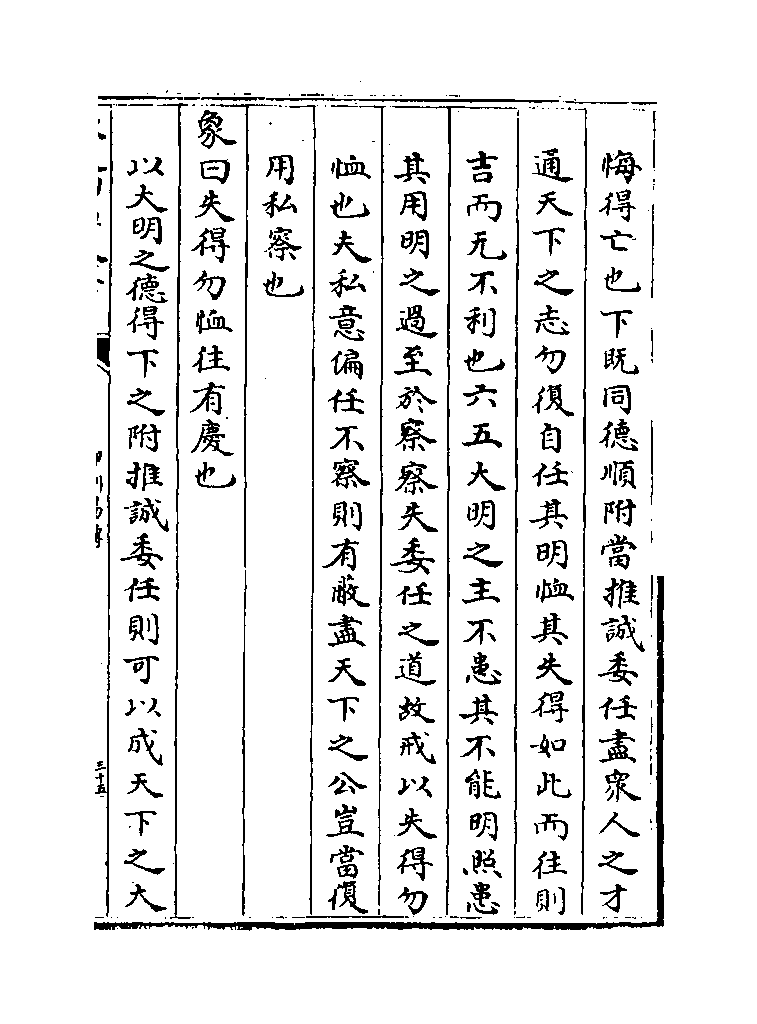 悔得亡也下既同德順附當推誠委任盡衆人之才
通天下之志勿復自任其明恤其失得如此而往則
吉而无不利也六五大明之主不患其不能明照患
其用明之過至於察察失委任之道故戒以失得勿
恤也夫私意偏任不察則有蔽盡天下之公豈當復
用私察也
象曰失得勿恤往有慶也
以大明之德得下之附推誠委任則可以成天下之大
三十五